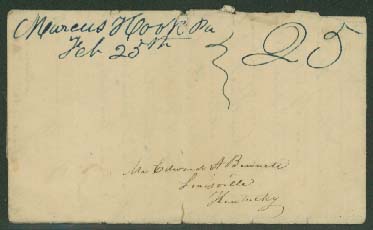 Marcus Hook Pa
Feb 25th
25
Mr Edward A Bennett
Louisville
Kentucky